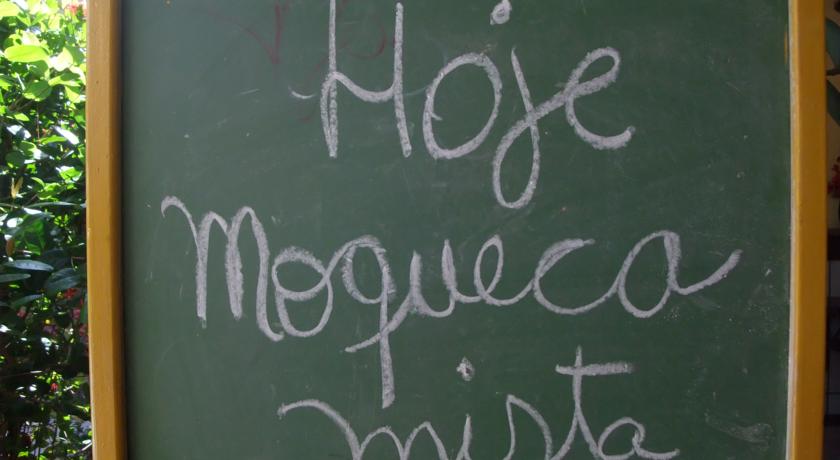 Hoje
Moqueca
mista